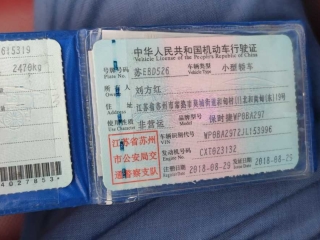 615319
2470kg
中华人民共和国机动车行驶证
Vehicle License of the People's Republic of China
号牌号码 苏E8D526 车辆类型 小型轿车
Plate No. Vehicle Type
所有人 刘方红
Owner
住址 江苏省苏州市
Address
使用性质 非营运 品牌型号 保时捷WP0BA297
Use Character Model
江苏省苏州
市公安局交
通警察支队
车辆识别代号 WP0BA2972JL153996
VIN
发动机号码 CXT023132
Engine No.
注册日期 2018-08-29 发证日期 2018-08-29
Register Date Issue Date